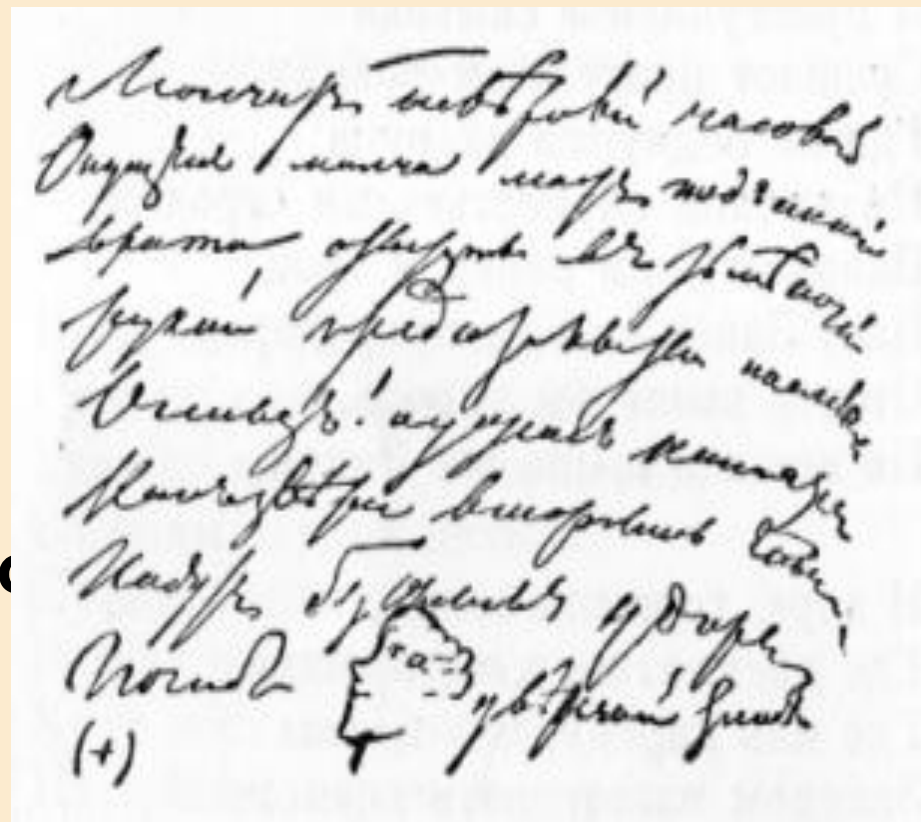 Молчитъ невѣрный часовой
Опущенъ молча мостъ подъемный
Врата отверсты въ тьмѣ ночной
Рукой предательства наемной
О стыдъ! о ужасъ нашихъ дней
Какъ звѣри вторглись
Падутъ безславные удары
Погибъ увѣнчанный злодѣй
(+)